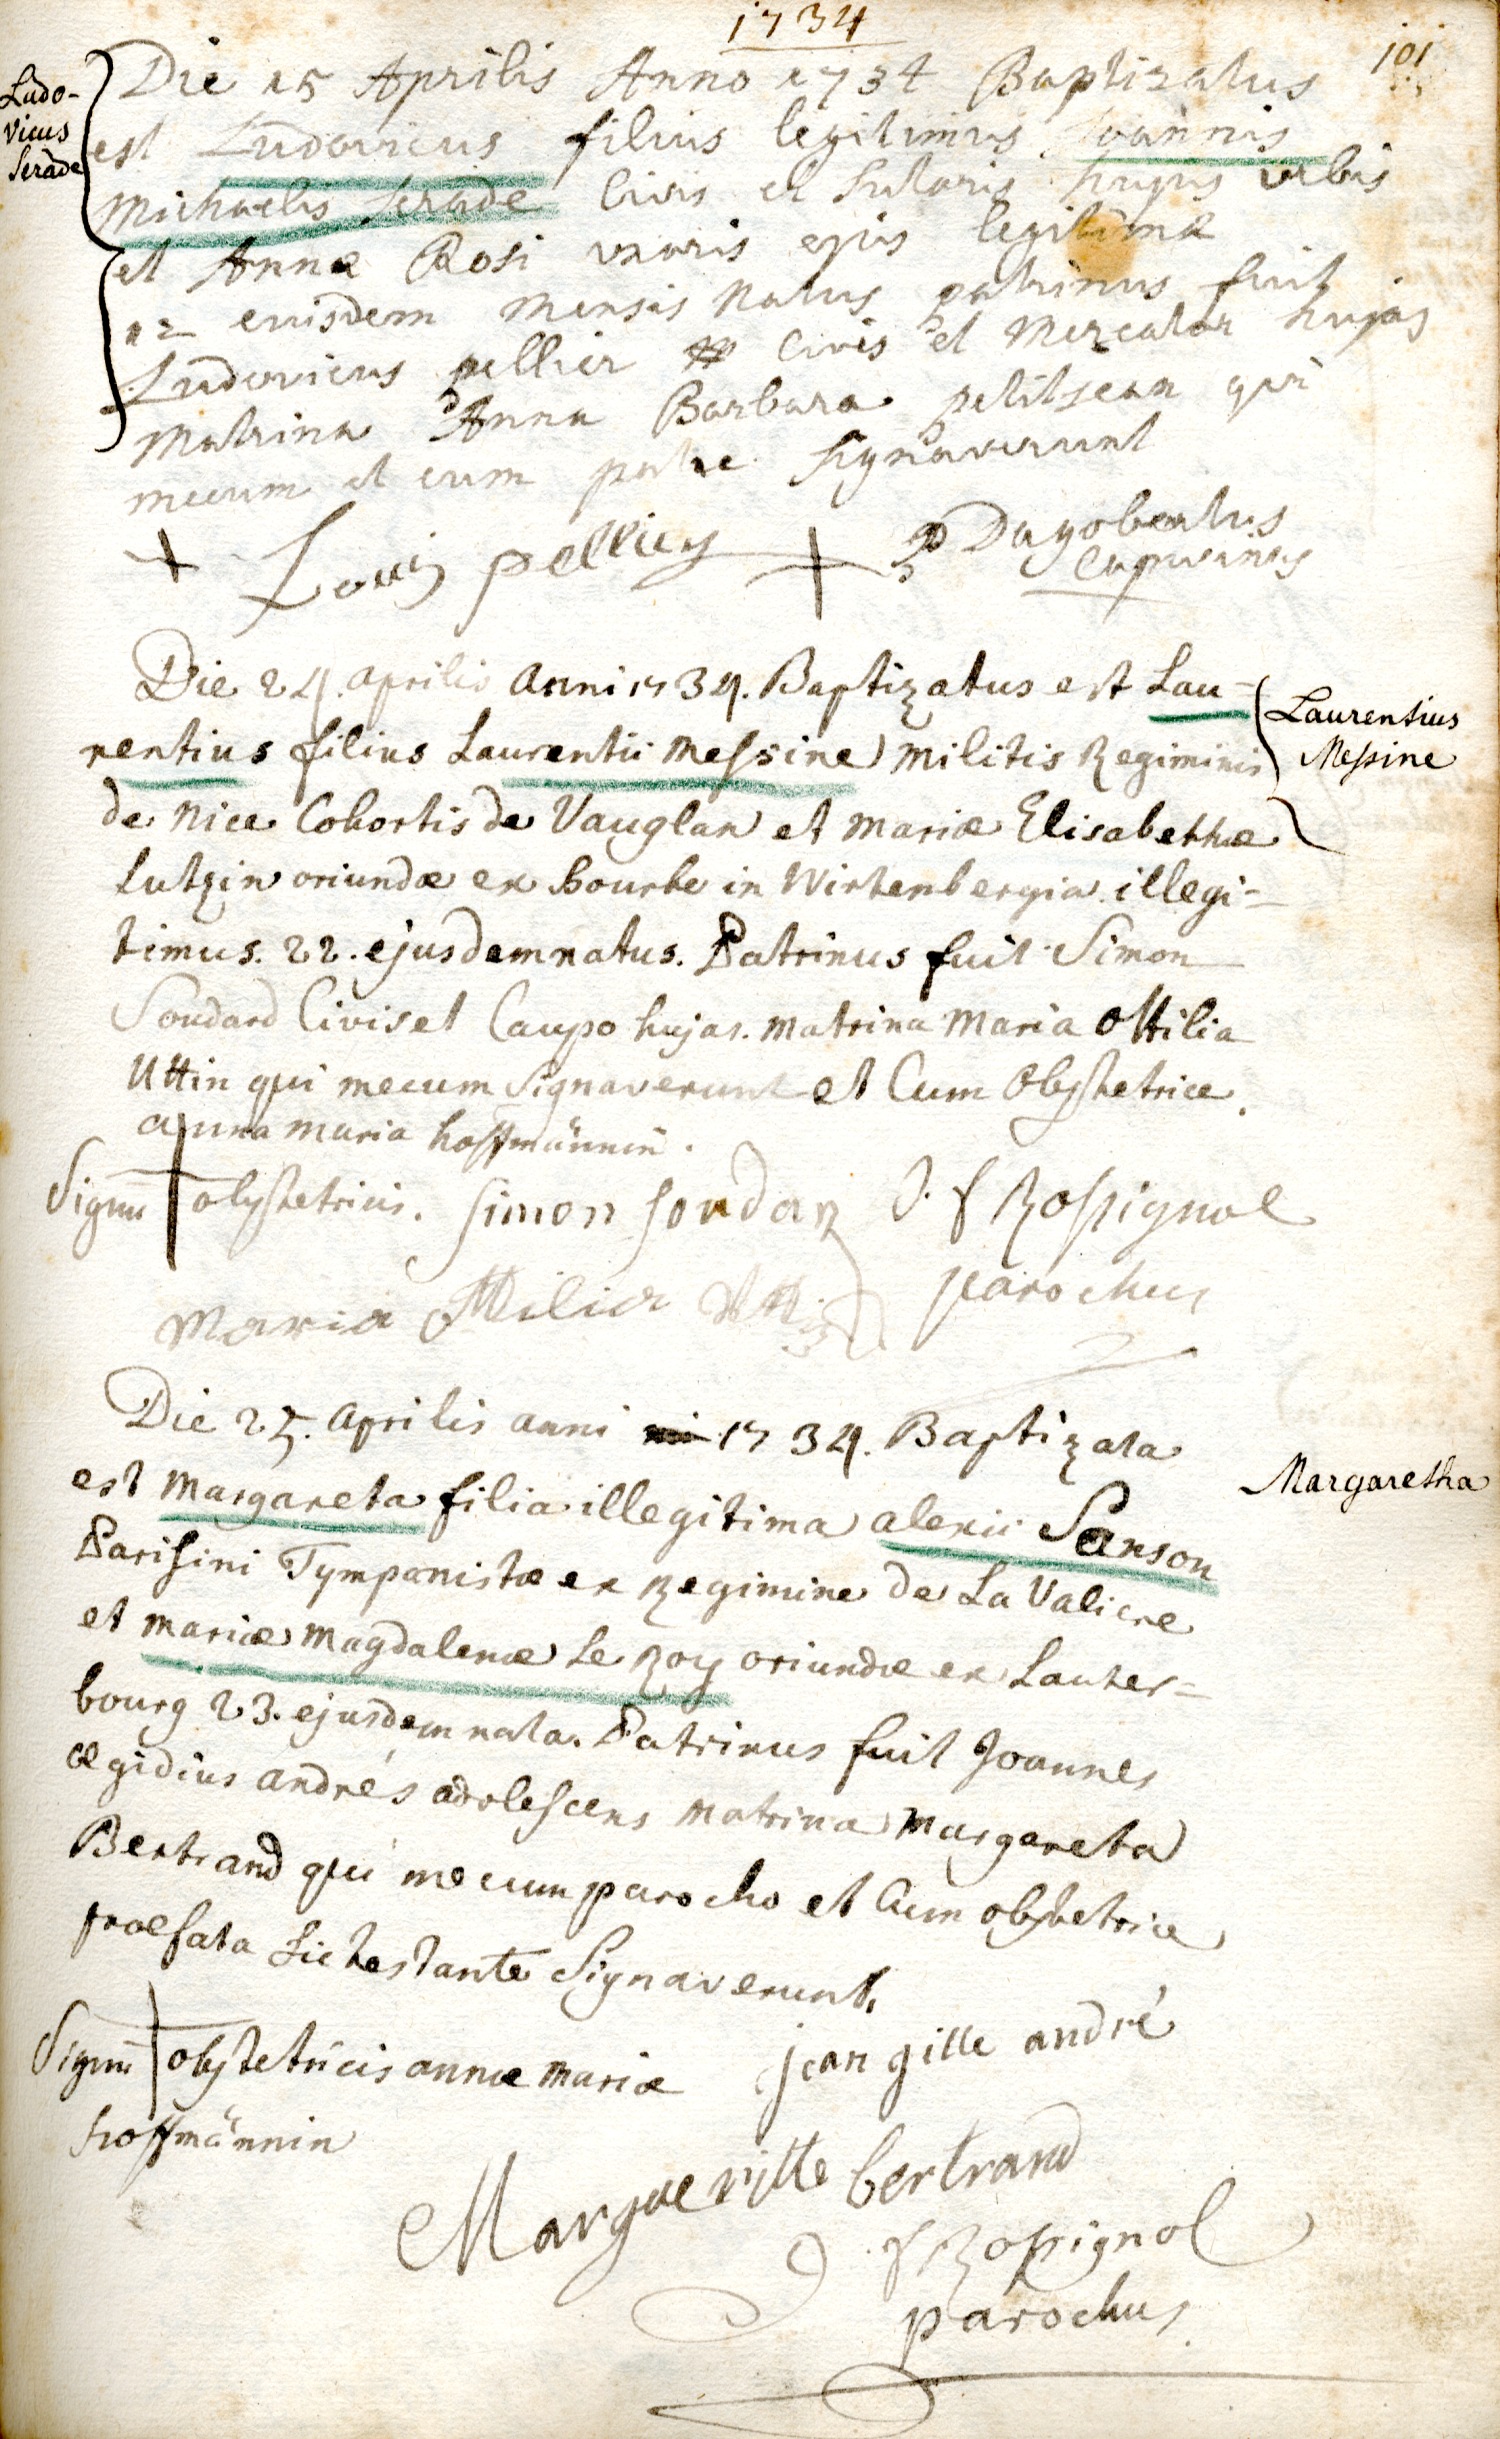 1734
101
Ludo-
vicus
Serade
Die 15 Aprilis Anno 1734 Baptizatus
est Ludovicus filius legitimus Joannis
Michaelis Serade Civis et Sutoris hujus urbis
et Annæ Rosi uxoris ejus legitimæ
12 eiusdem mensis natus patrinus fuit
Ludovicus pellier Civis et Mercator hujas
Matrina Anna Barbara petitjean qui
mecum et cum patre signaverunt
Louis pellier P Dagobertus
Capucinus
Die 24. aprilis anni 1734. Baptizatus est Lau-
rentius filius Laurentii Messine militis Regiminis
Laurentius
Messine
de nice Cohortis de Vauglan et mariæ Elisabethæ
Lutzin oriundæ ex Bourbe in Wirtembergia illegi-
timus. 22. ejusdem natus. Patrinus fuit Simon
Soudard Civis et Caupo hujas. matrina maria Ottilia
Uttin qui mecum signaverunt et Cum Obstetrice
anna maria hoffmännin.
Signu obstetricis. simon soudar J. f Rossignol
maria Ottilia parochus
Die 25. aprilis anni 1734. Baptizata
est Margareta filia illegitima alexii Sanson
Margaretha
Parisini Tympanistæ ex Regimine de La Valiere
et mariæ magdalenæ Le Roy oriundæ ex Lauter=
bourg 23. ejusdem nata. Patrinus fuit Joannes
ægidius andrés adolescens matrina margareta
Bertrand qui mecum parocho et Cum obstetrice
præfata sic testante signaverunt.
Signu obstetricis annæ mariæ jean gille andré
hoffmännin
Margueritte bertrand
J. f Rossignol
parochus